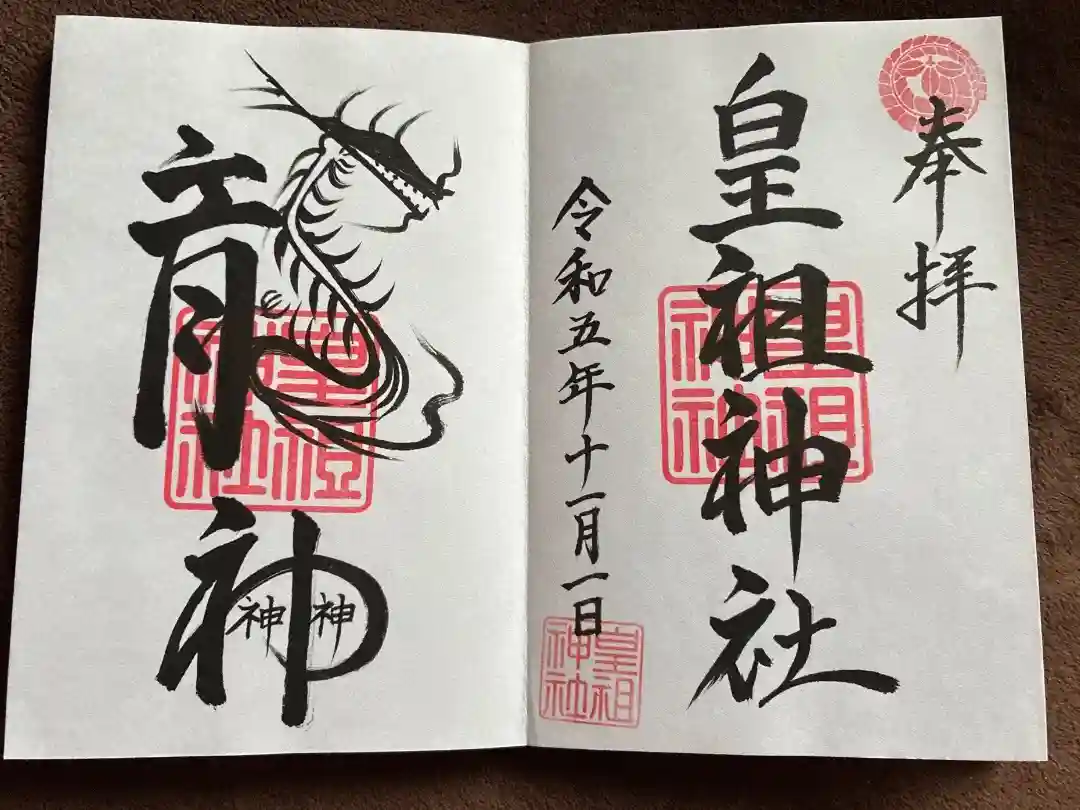 奉拝
皇祖神社
令和五年十一月一日
皇祖
神社
皇祖
神社
龍神
神神
皇祖
神社